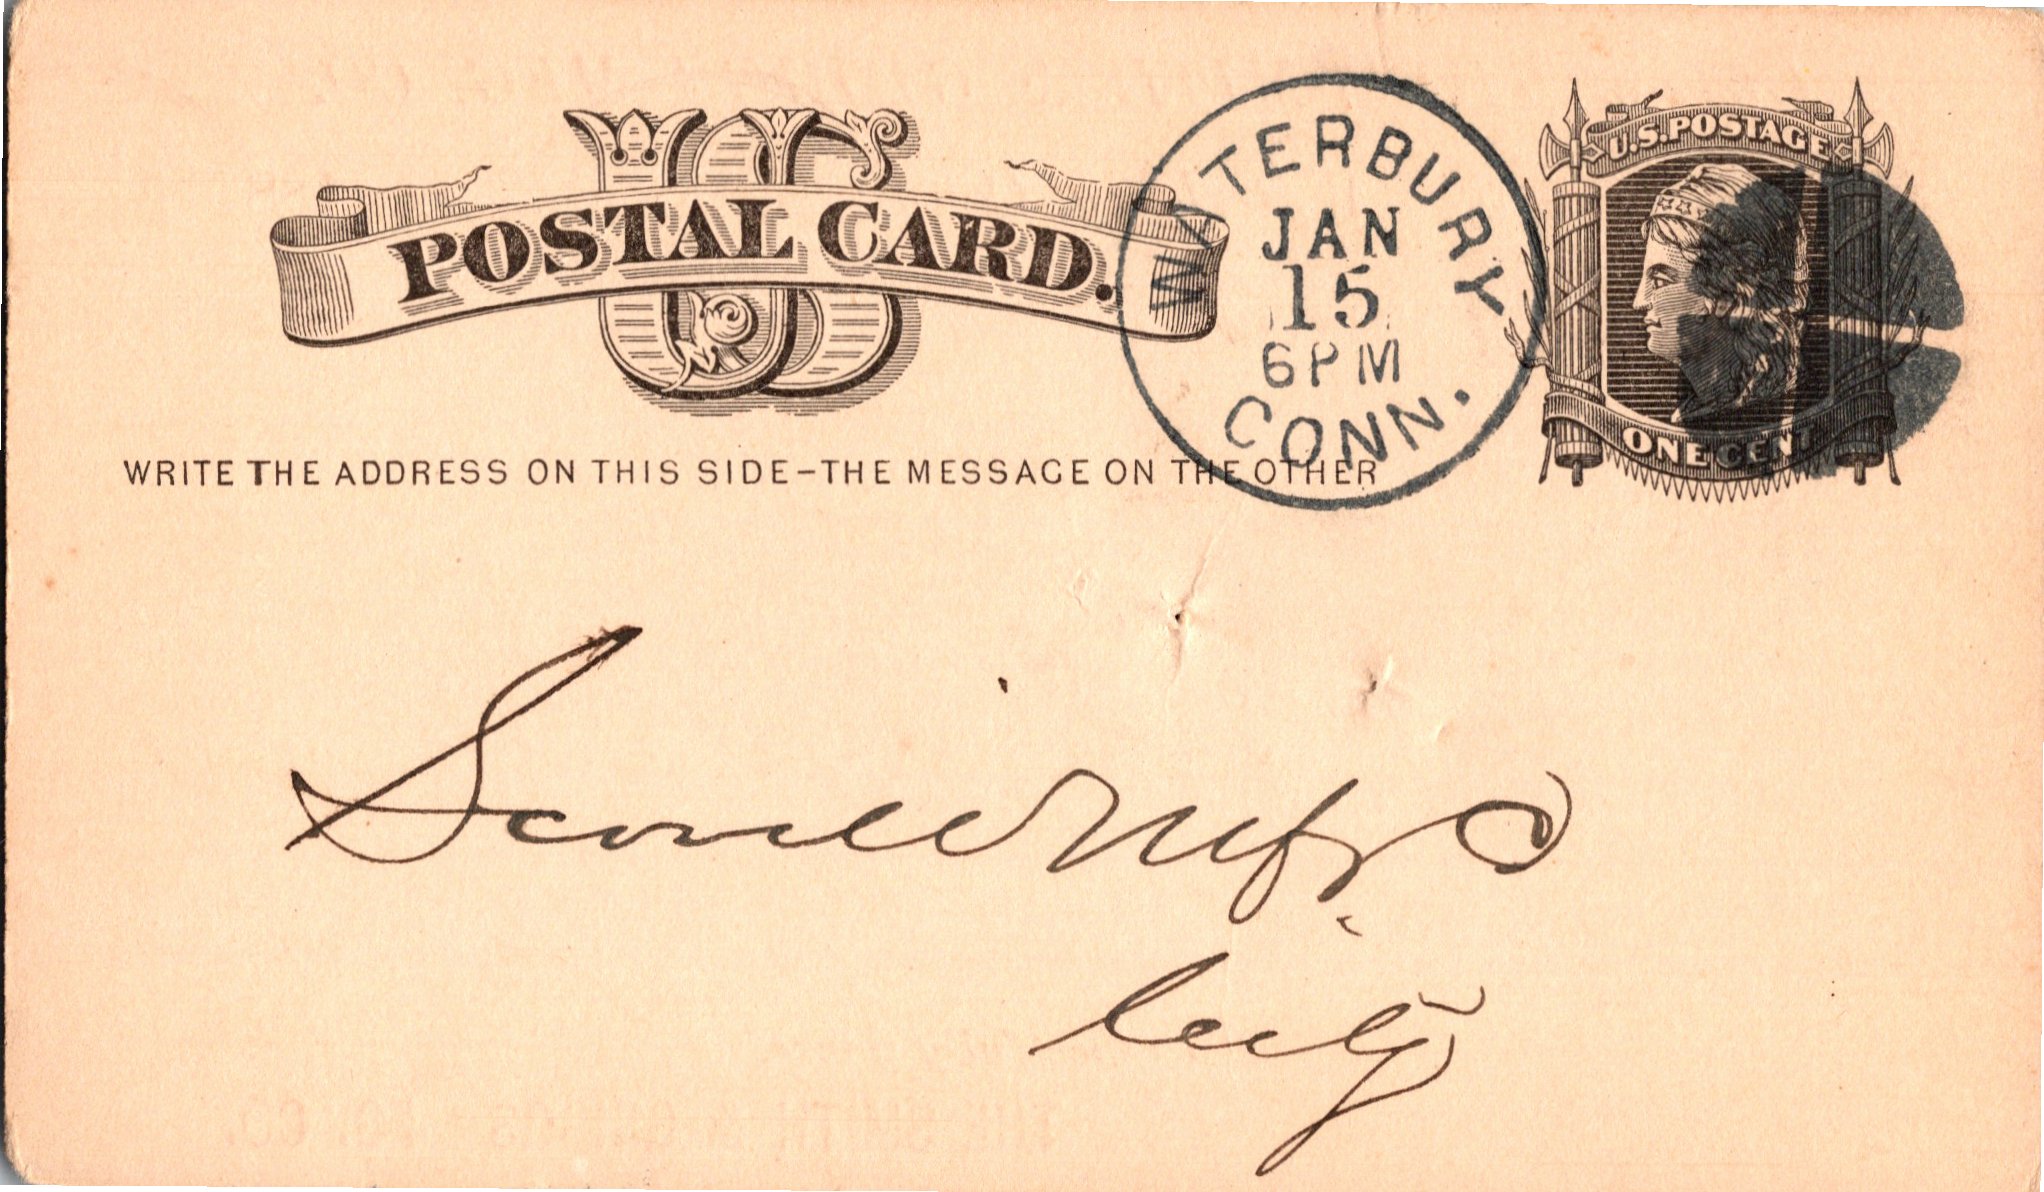 US
POSTAL CARD.
WATERBURY
JAN
15
6PM
CONN.
U.S. POSTAGE
ONE CENT
WRITE THE ADDRESS ON THIS SIDE–THE MESSAGE ON THE OTHER
Scovill Mfg Co
City